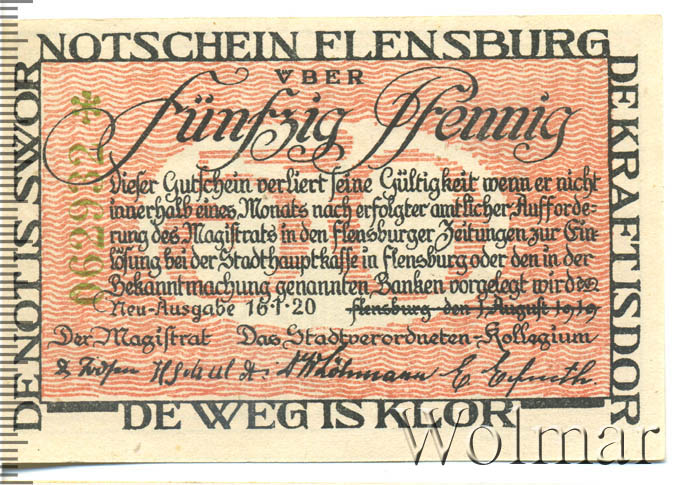 NOTSCHEIN FLENSBURG
VBER
Fünfzig Pfennig
Dieser Gutschein verliert seine Gültigkeit wenn er nicht
innerhalb eines Monats nach erfolgter amtlicher Aufforde-
rung des Magistrats in den Flensburger Zeitungen zur Ein-
lösung bei der Stadthauptkasse in Flensburg oder den in der
Bekanntmachung genannten Banken vorgelegt wird
Neu-Ausgabe 16·1·20 Flensburg den 1. August 1919
Der Magistrat Das Stadtverordneten-Kollegium
062932 *
DE NOT IS SWOR
DE KRAFT IS DOR
DE WEG IS KLOR
Wolmar